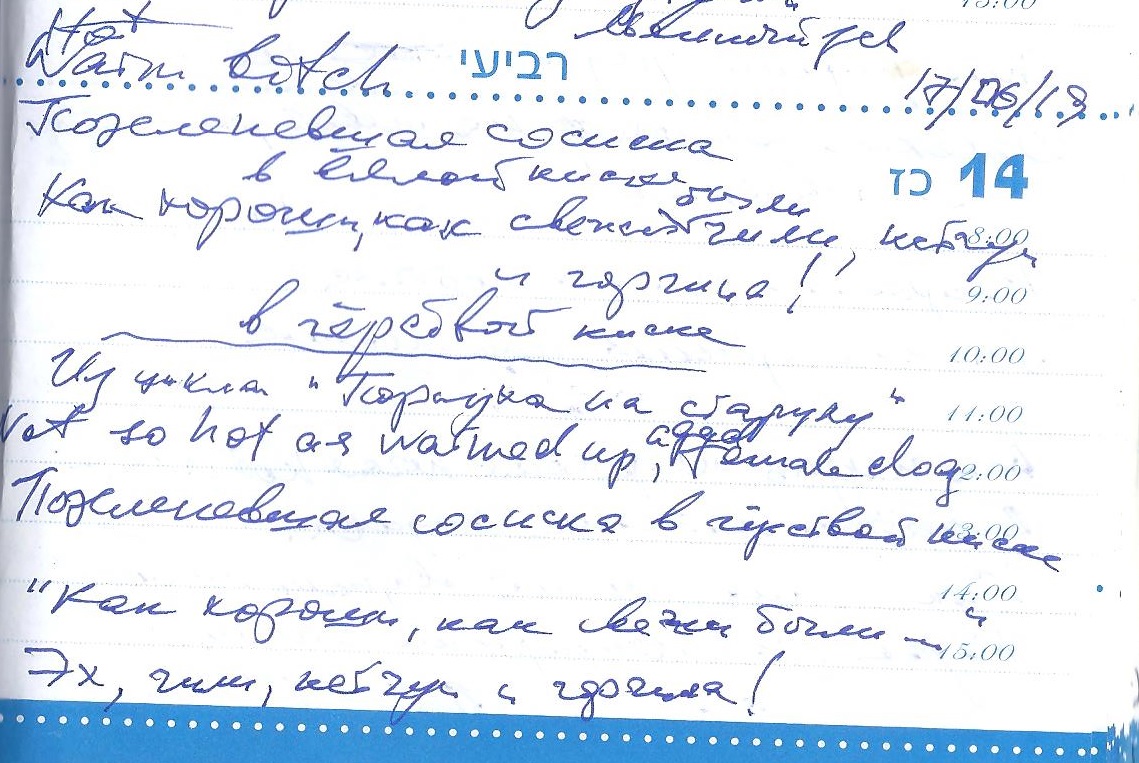 15:00
Hot
Warm botch
רביעי
17/06/19
Позеленевшая сосиска
в вялой киске
כז 14
Как хороши, как свежи были
чили, кетчуп
8:00
и горчица!
9:00
в чёрствой киске
10:00
Из цикла "Порнуха на старуху"
11:00
Not so hot as warmed up, female dog
12:00
Позеленевшая сосиска в чёрствой киске
13:00
14:00
"Как хороши, как свежи были —"
15:00
Эх, чили, кетчуп и горчица!